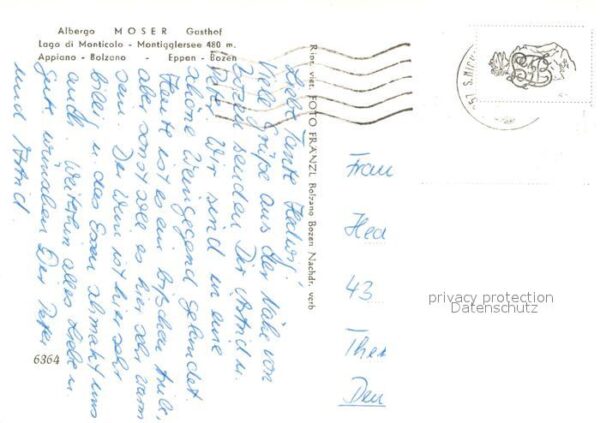 Albergo MOSER Gasthof
Lago di Monticolo - Montigglersee 480 m.
Appiano - Bolzano - Eppan - Bozen
Liebe Tante Hedwig,
viele Grüße aus der Nähe von
Bozen senden Dir Astrid u.
Peter. Wir sind in eine
schöne Weingegend gelandet.
Heute ist es ein bißchen trübe,
aber sonst soll es hier sehr warm
sein. Der Wein ist hier sehr
billig u. das Essen schmeckt uns
auch. Weiterhin alles Liebe u.
Gute wünschen Dir Peter
und Astrid
6364
Ripr. viet. FOTO FRANZL Bolzano Bozen Nachdr. verb
Frau
Hed
43
Ther
Den
privacy protection
Datenschutz